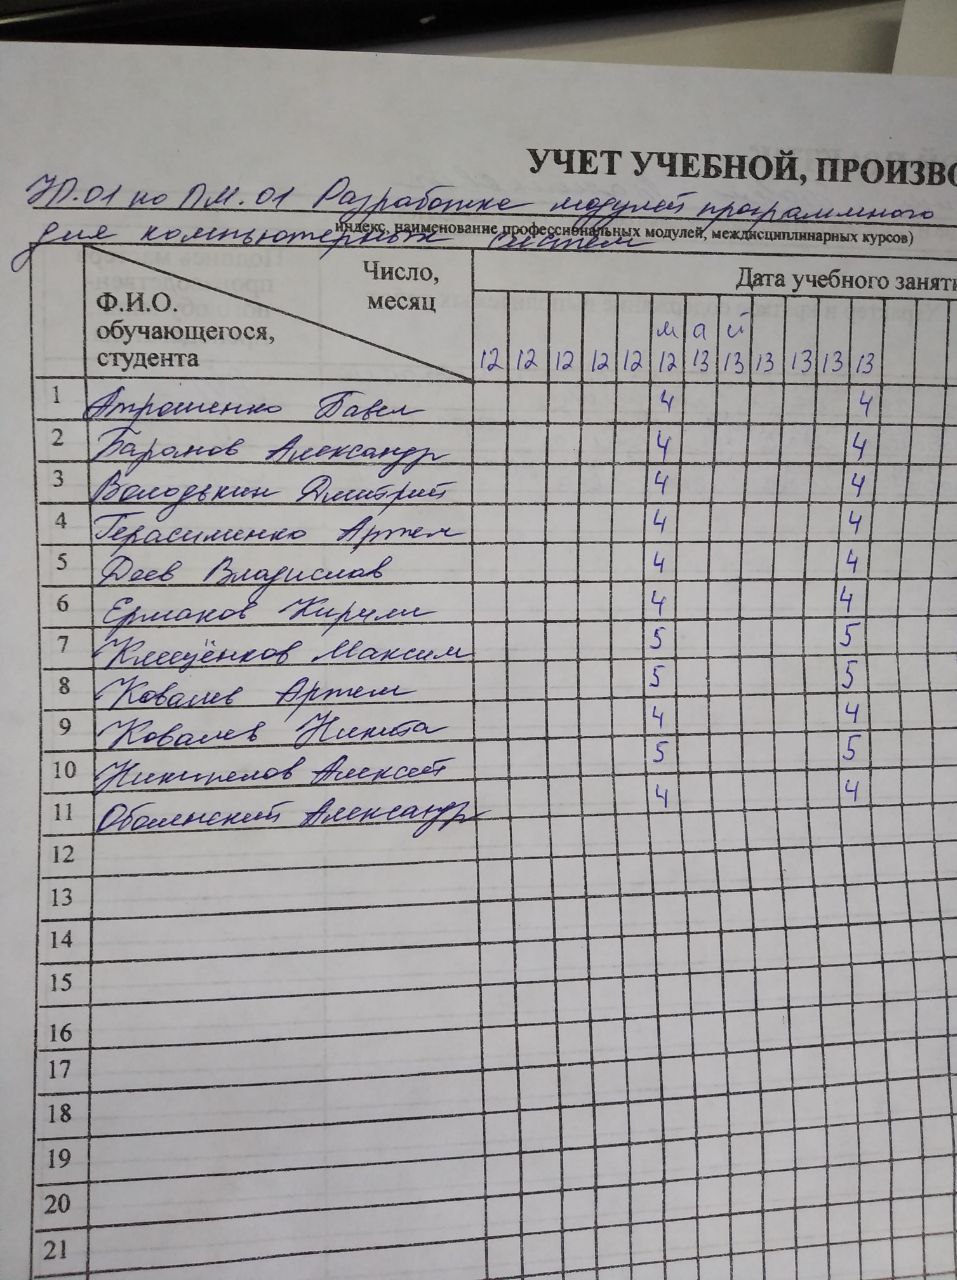 УЧЕТ УЧЕБНОЙ, ПРОИЗВО
УП.01 по ПМ.01 Разработка модулей программного
индекс, наименование профессиональных модулей, междисциплинарных курсов)
для компьютерных систем
Число, месяц
Дата учебного заняти
Ф.И.О. обучающегося, студента
май
12 12 12 12 12 12 13 13 13 13 13 13
1 Атрошенко Павел 4 4
2 Баранов Александр 4 4
3 Володькин Дмитрий 4 4
4 Герасименко Артем 4 4
5 Деев Владислав 4 4
6 Ермаков Кирилл 4 4
7 Клещёнков Максим 5 5
8 Ковалев Артем 5 5
9 Ковалев Никита 4 4
10 Никипелов Алексей 5 5
11 Оболенский Александр 4 4
12
13
14
15
16
17
18
19
20
21